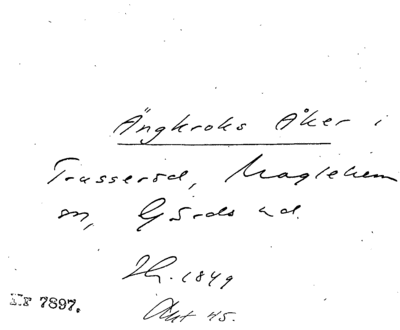 Ängkroks Åker i
Trusseröd, Maglehem
sn, Gärds hd.
Lh. 1849
Akt 45.
Nr 7897.